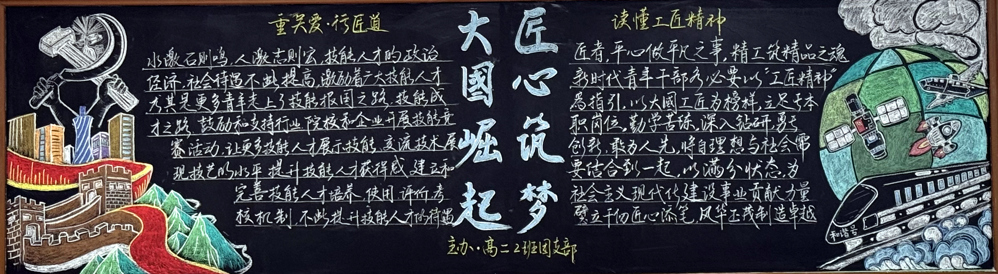 重关爱·行匠道
水激石则鸣,人激志则宏,技能人才的政治
经济,社会待遇不断提高,激励着广大技能人才
尤其是更多青年走上了技能报国之路,技能成
才之路,鼓励和支持行业院校和企业开展技能竞
赛活动,让更多技能人才展示技能,交流技术,展
现技艺的水平,提升技能人才获得感,建立和
完善技能人才培养,使用,评价,考
核机制,不断提升技能人才的待遇
大國崛起
匠心筑梦
读懂工匠精神
匠者,平心做平凡之事,精工筑精品之魂
新时代青年干部务必要以“工匠精神”
为指引,以大國工匠为榜样,立足本
职岗位,勤学苦练,深入钻研,勇于
创新,敢为人先,将自理想与社会需
要结合到一起,以满分状态,为
社会主义现代化建设事业贡献力量
壁立千仞匠心添笔,风华正茂制造卓越
和谐号
主办·高二2班团支部